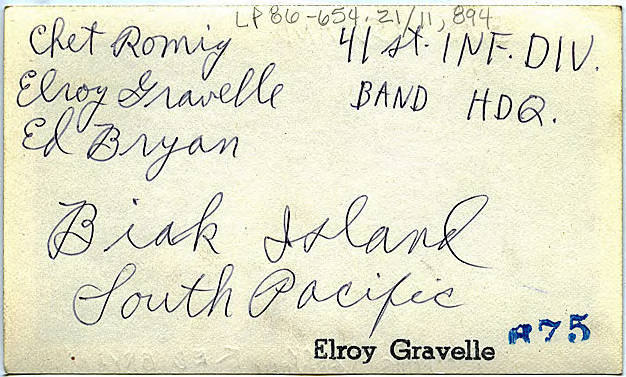 LP86-654.21/11,894
Chet Romig 41st. INF. DIV.
Elroy Gravelle BAND HDQ.
Ed Bryan
Biak Island
South Pacific
Elroy Gravelle 75